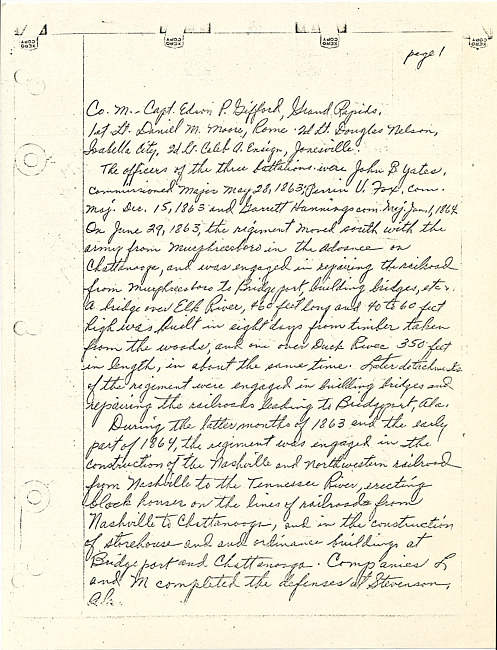 XEROX COPY XEROX COPY XEROX COPY XEROX COPY
page 1
Co. M. - Capt. Edson P. Gifford, Grand Rapids,
1st Lt. Daniel M. Moore, Rome 2d Lt. Douglas Nelson,
Isabella City, 2d Lt. Caleb A. Ensign, Jonesville.
The officers of the three battalions were John B Yates,
commissioned Major May 28, 1863, Perrin V. Fox, com.
Maj. Dec. 15, 1863 and Garrett Hannings com. Maj. Jan 1, 1864
On June 29, 1863, the regiment moved south with the
army from Murphreesboro in the advance on
Chattanooga, and was engaged in repairing the railroad
from Murphreesboro to Bridgeport, building bridges, etc.
A bridge over Elk River, 460 feet long and 40 to 60 feet
high was built in eight days from timber taken
from the woods, and one over Duck River 350 feet
in length, in about the same time. Later detachments
of the regiment were engaged in building bridges and
repairing the railroads leading to Bridgeport, Ala.
During the latter months of 1863 and the early
part of 1864, the regiment was engaged in the
construction of the Nashville and Northwestern railroad
from Nashville to the Tennessee River, erecting
block houses on the lines of railroads from
Nashville to Chattanooga, and in the construction
of storehouse and and ordinance buildings at
Bridgeport and Chattanooga. Companies L
and M completed the defenses at Stevenson,
Ala.